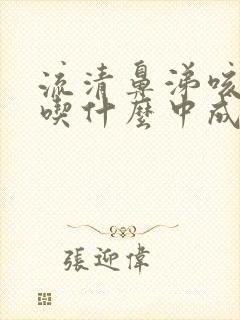 流清鼻涕咳
喫什麼中成
張迎偉